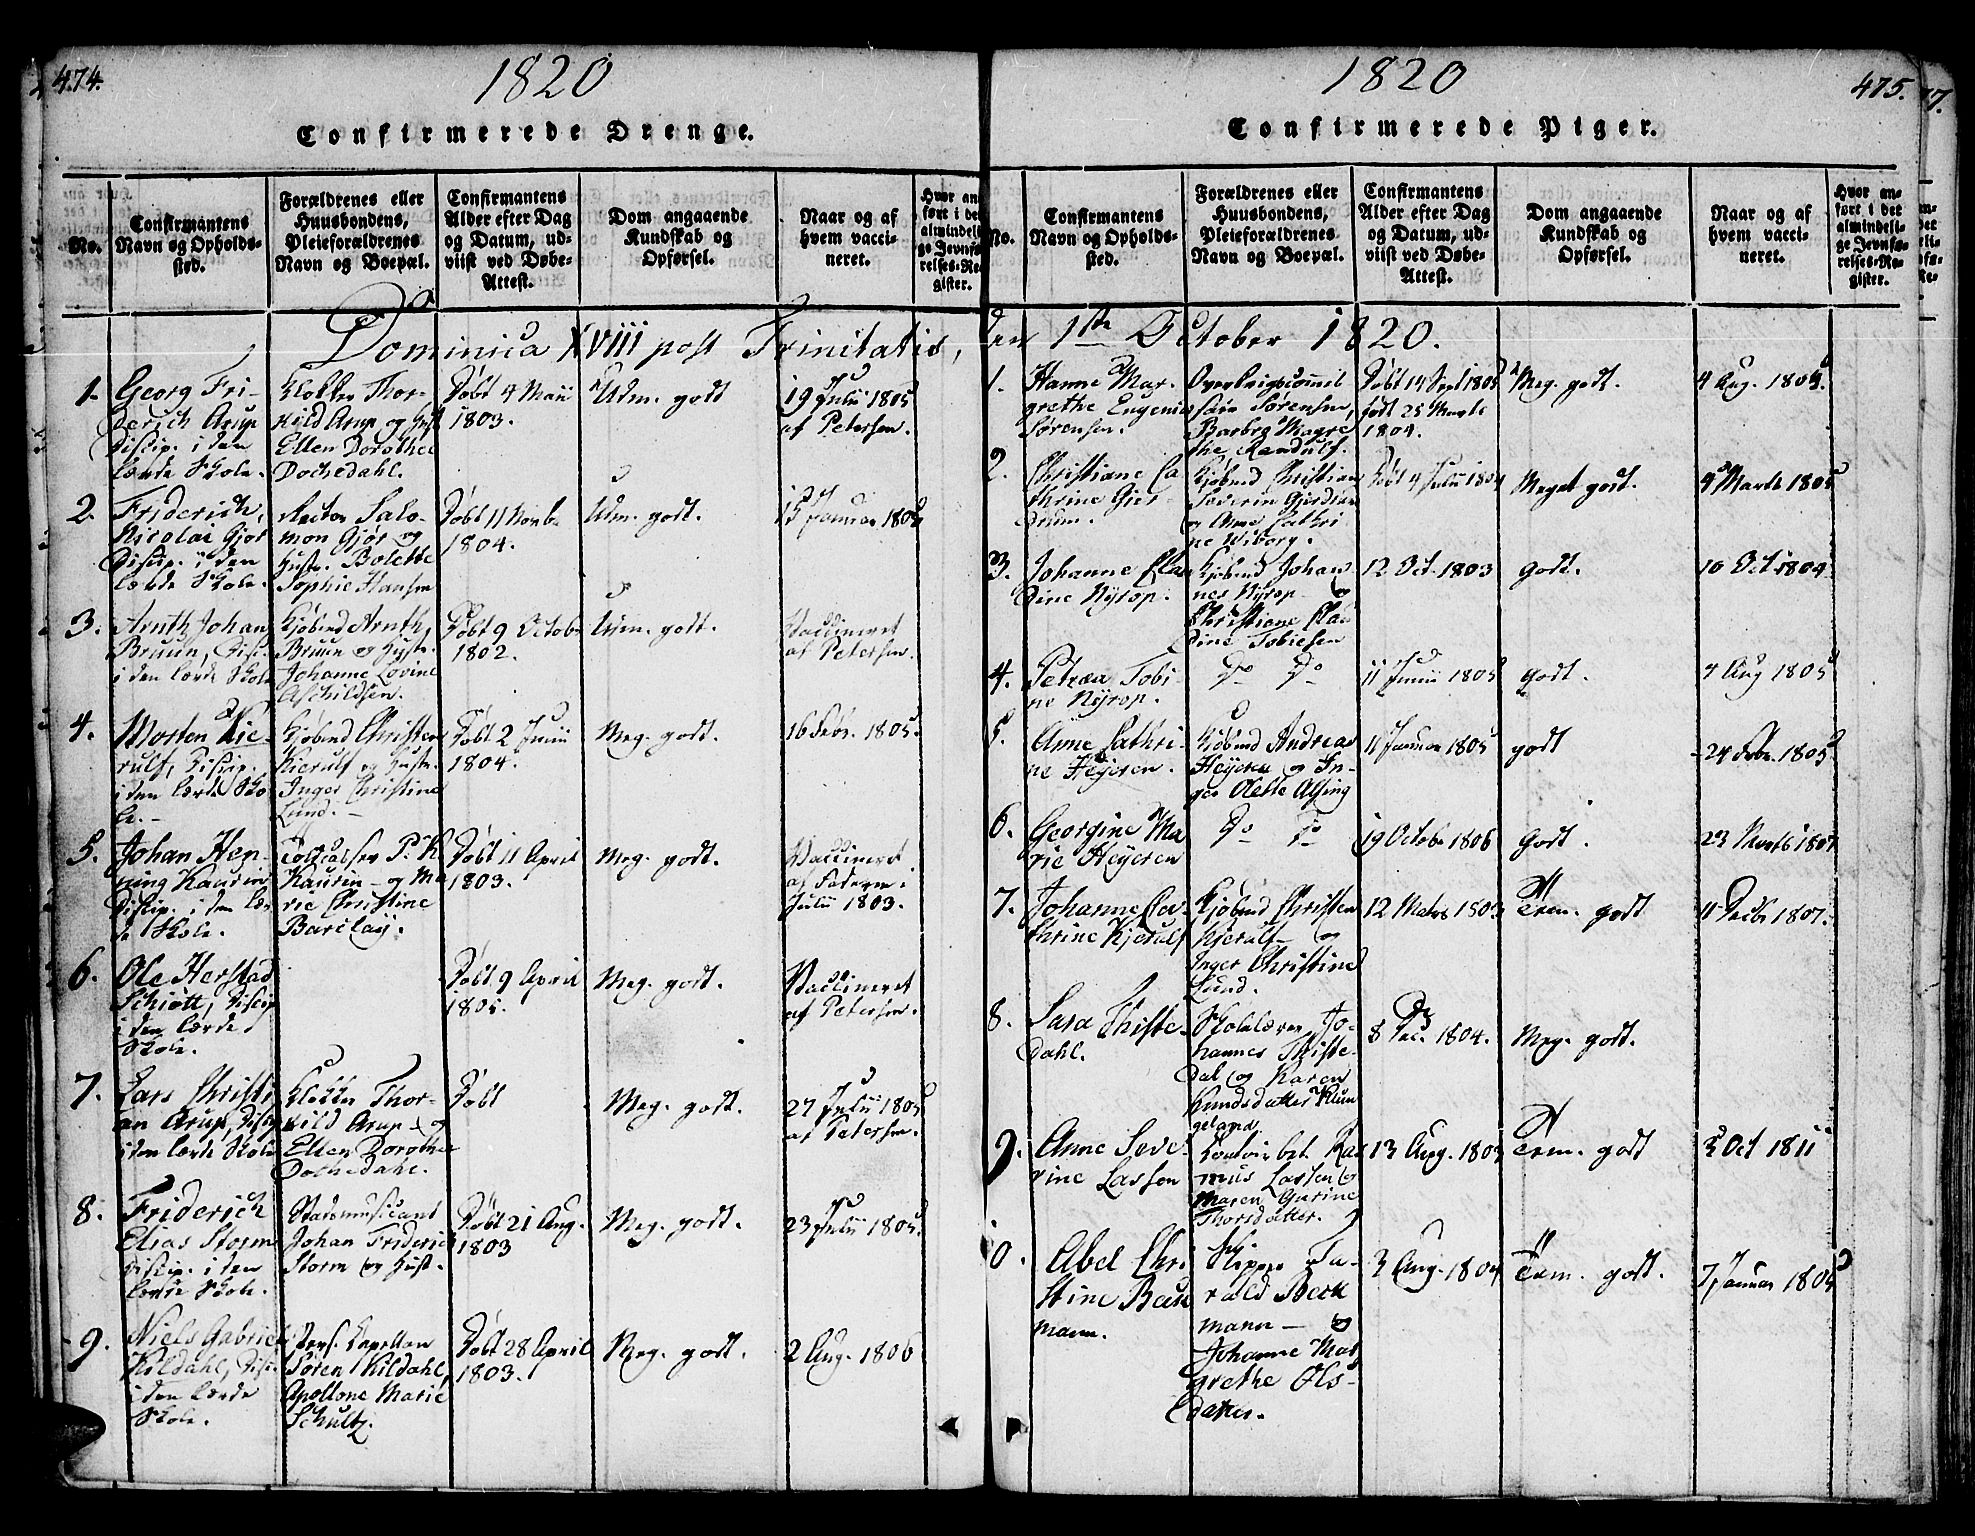 474.
1820
Confirmerede Drenge.
No.
Confirmantens
Navn og Opholds-
sted.
Forældrenes eller
Huusbondens,
Pleieforældrenes
Navn og Boepæl.
Confirmantens
Alder efter Dag
og Datum, ud-
viist ved Døbe-
Attest.
Dom angaaende
Kundskab og
Opførsel.
Naar og af
hvem vacci-
neret.
Hvor an
ført i det
almindeli
ge Jevnfø
relses-Re
gister.
Dominica XVIII post Trinitatis,
1.
Georg Fri-
derich Arup
Discip. i den
lærde Skole.
Klokker Thor-
kild Arup og Hust
Ellen Dorothea
Dochedahl.
Døbt 4 Maii
1803.
Udm. godt
19 Julii 1805
af Petersen.
2.
Friderich,
Nicolai Gjør
Discip. i den
lærde Skole.
Rector Salo-
mon Gjør og
Hustr. Bolette
Sophie Hansen
Døbt 11 Novb.
1804.
Udm. godt.
15 Januar 1805
3.
Arnth Johan
Bruun, Disc.
i den lærde Skole
Kjøbmd Arnth,
Bruun og Hustr.
Johanne Lovine
Aschildsen.
Døbt 9 Octobr
1802.
Udm. godt.
Vaccineret
af Petersen.
4.
Morten Kie-
rulf, Discip.
i den lærde Sko
le.-
Kjøbmd Christen
Kierulf og Hustr.
Inger Christine
Lund.-
Døbt 2 Junii
1804.
Meg. godt.
16 Febr. 1805.
5.
Johan Hen-
ning Kaurin
Discip. i den lær
de Skole.
P. K
Kaurin - og Ma
rie Christine
Barclay.
Døbt 11 April
1803.
Meg. godt.
Vaccineret
af Faderen i
Julii 1803.
6.
Ole Herstad
Schiøtt, Discip
i den lærde
Skole.
Døbt 9 April
1805.
Meg. godt.
Vaccineret
af Petersen.
7.
Lars Christi
an Arup, Discip
i den lærde Skole
Klokker Thor-
kild Arup - og
Ellen Dorothea
Dochedahl.
Døbt
Meg. godt.
27 Julii 1805
af Petersen.
8.
Friderich
Elias Storm
Discip. i den
lærde Skole.
Stadsmusicant
Johan Friderich
Storm og Hust.
Døbt 21 Aug.
1803
Meg. godt.
23 Julii 1805.
9.
Niels Gabriel
Kildahl, Disc.
i den lærde
Skole.
Pers. Capellan
Søren Kildahl,
Apollone Marie
Schultz.
Døbt 28 April
1803.
Meg. godt.
2 Aug. 1806
475.
1820
Confirmerede Piger.
No.
Confirmantens
Navn og Opholds-
sted.
Forældrenes eller
Huusbondens,
Pleieforældrenes
Navn og Boepæl.
Confirmantens
Alder efter Dag
og Datum, ud-
viist ved Døbe-
Attest.
Dom angaaende
Kundskab og
Opførsel.
Naar og af
hvem vacci-
neret.
Hvor an-
ført i det
almindeli-
ge Jevnfø-
relses-Re-
gister.
den 1ste October 1820.
1.
Hanne Mar-
grethe Eugenia
Sørensen.
Overkrigscommis
sair Sørensen,
Barbra Magre
the Randulf.
født 25 Marts
1804.
Meg. godt.
4 Aug. 1805.
2.
Christiane Ca
thrine Gjer-
drum.
Kjøbmd Christian
Severin Gjerdrum
og Anne Cathri
ne Wiborg.
Døbt 4 Julii 1804
Meget godt.
4 Marts 1805
3.
Johanne Clau
dine Nyrop.
Kjøbmd Johan
nes Nyrop - og
Christiane Clau
dine Tobiesen
12 Oct. 1803
godt.
10 Oct 1804
4.
Petræa Tobi-
ne Nyrop.
Do Do
11 Junii 1805
godt.
4 Aug 1805
5.
Anne Cathri-
ne Heyeren.
Kjøbmd Andreas
Heyeren og In-
ger Olette Alsing
11 Januar 1805
godt
24 Febr. 1805
6.
Georgine Ma
rie Heyeren
Do Do
19 Octobr 1806
godt.
23 1807
7.
Johanne Ca-
thrine Kjerulf
Kjøbmd Christen
Kjerulf - og
Inger Christine
Lund.
12 Marts 1803
Tem. godt
11 Decbr 1807.
8.
Sara Thiste-
dahl.
Skolelærer Jo-
hannes Thiste-
dal og Karen
Knudsdatter Klun
geland.
8 Dec. 1804.
Meg. godt.
9.
Anne Seve-
rine Lassen
Contoirbet. Ras
mus Lassen og
Maren Gurine
Thorsdatter.
13 Aug. 1803
Tem. godt
3 Oct 1811
0.
Abel Chri
stine Beck
mann.
Skipper Ta-
rald Beck
mann - og
Johanne Mar
grethe Ols-
datter.
3 Aug. 1804
Tem. godt.
7 Januar 1805
77.